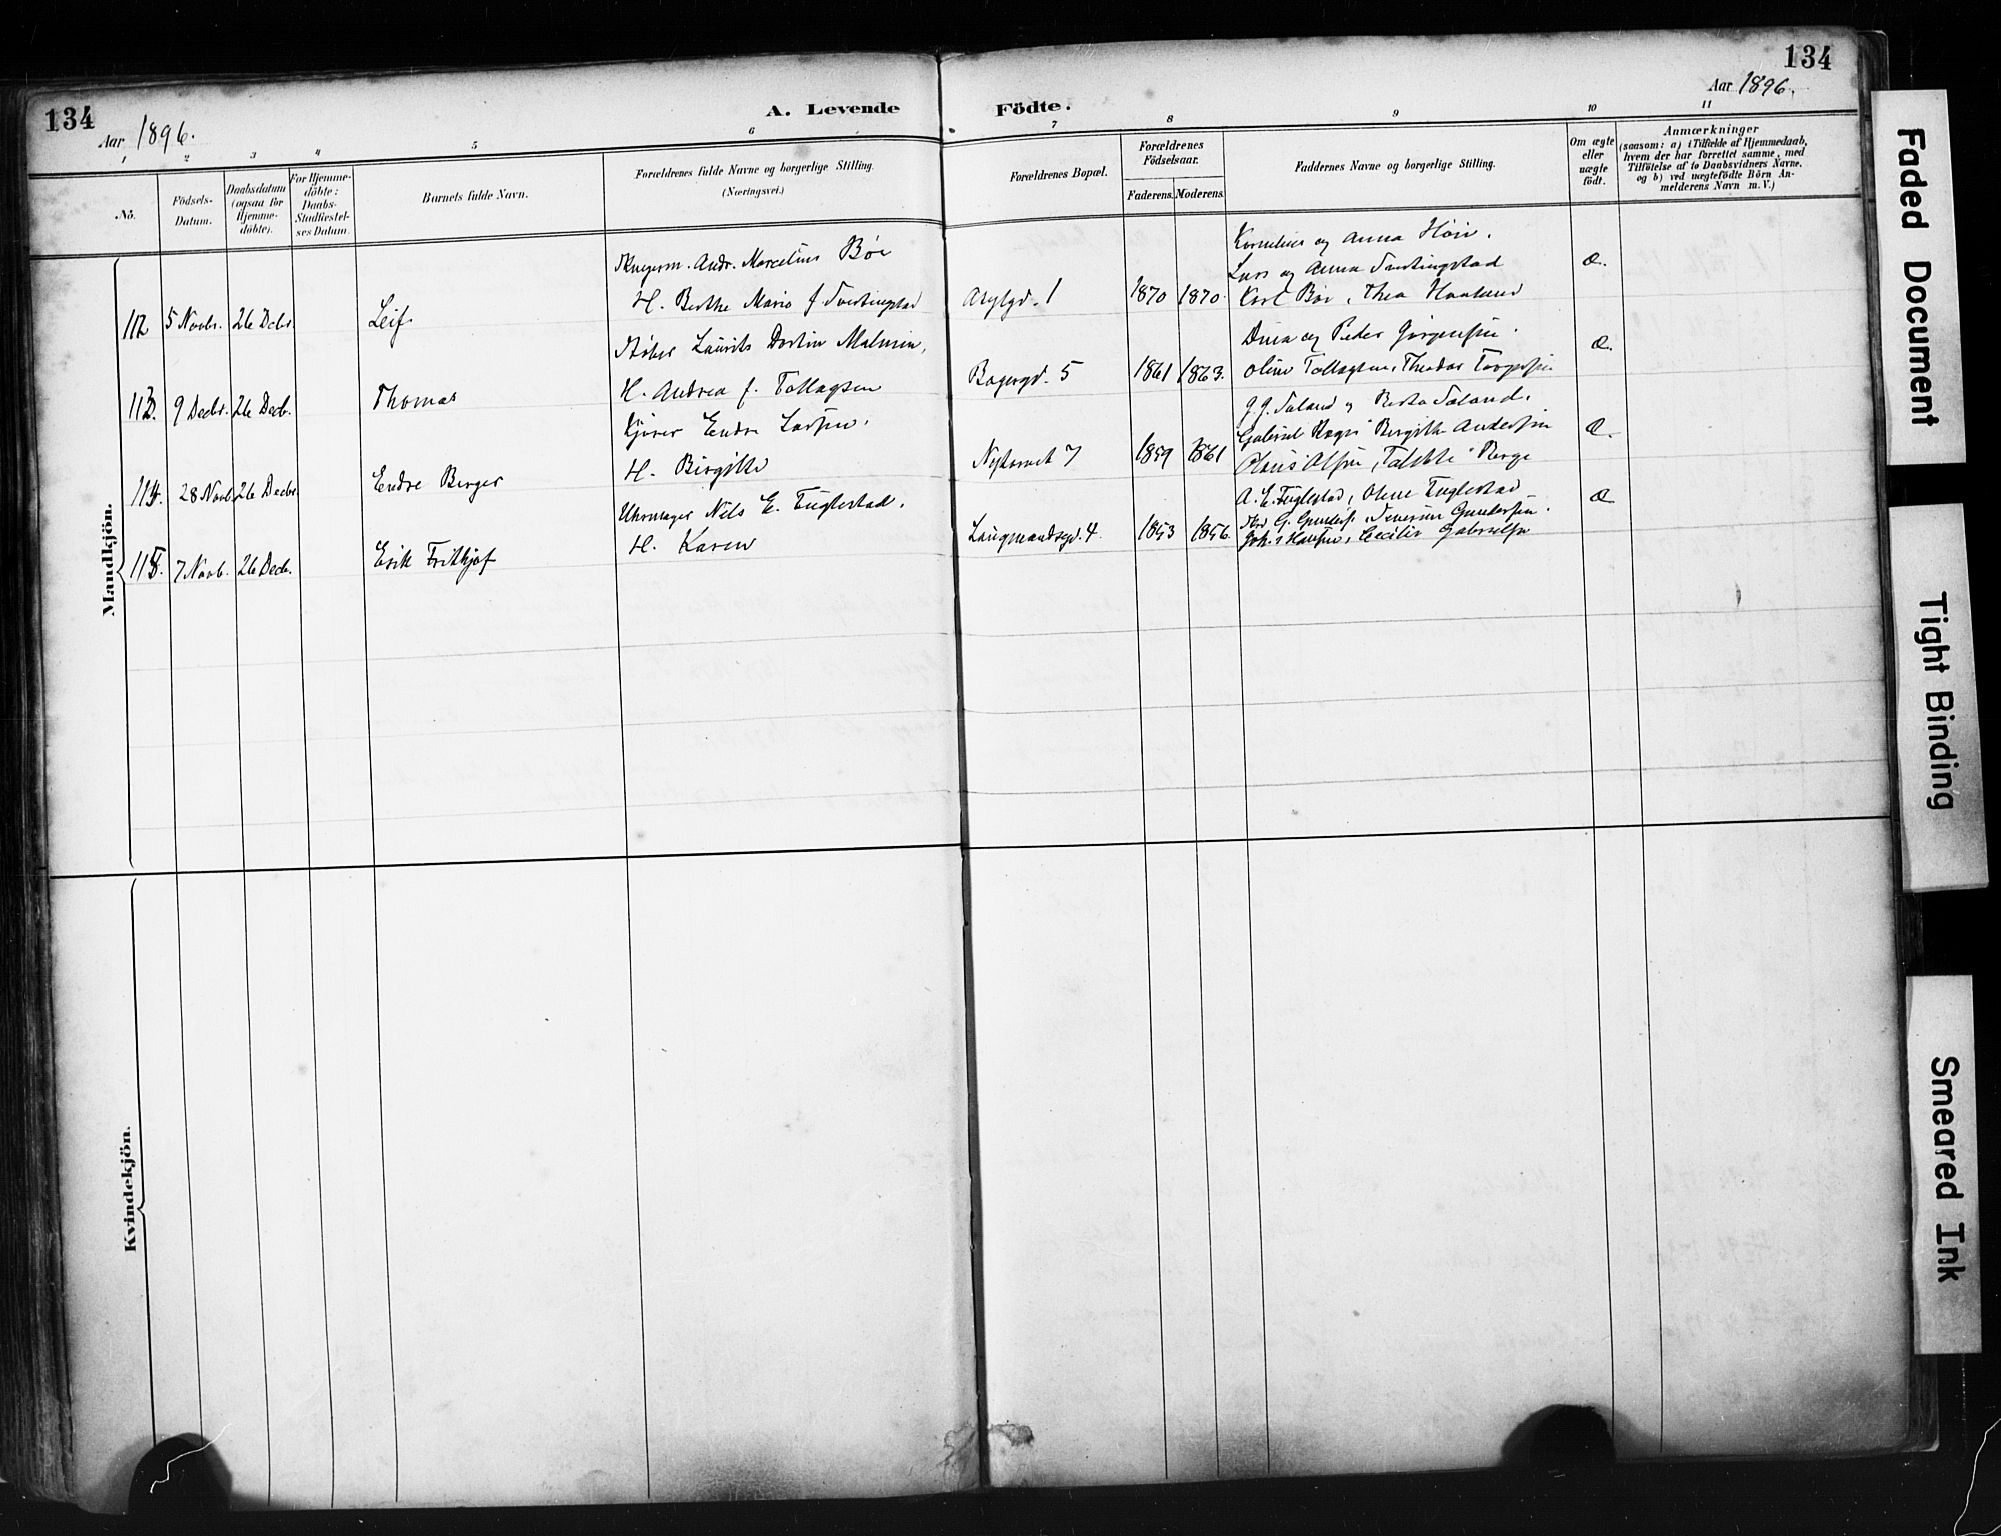 134
Aar 1896.
A. Levende
Födte.
134
Aar 1896.
1 2 3 4 5 6 7 8 9 10 11
No.
Födsels-
Datum.
Daabsdatum
(ogsaa for
Hjemme-
döbte).
For Hjemme-
döbte:
Daabs-
Stadfæstel-
ses Datum.
Barnets fulde Navn.
Forældrenes fulde Navne og borgerlige Stilling.
(Næringsvei.)
Forældrenes Bopæl.
Forældrenes
Födselsaar.
Faderens. Moderens.
Faddernes Navne og borgerlige Stilling.
Om ægte
eller
uægte
födt.
Anmærkninger
(saasom: a) i Tilfælde af Hjemmedaab,
hvem der har forrettet samme, med
Tilföielse af to Daabsvidners Navne,
og b) ved uægtefödte Börn An-
melderens Navn m. V.)
Mandkjön.
112 5 Novbr. 26 Dcbr Leif
Andr. Marcelius Böe
H. Berthe Marie f. Tverlingstad
1 1870 1870.
Kornelius og Anna
Lars og Anna
Karl Böe, Thea Haaland
Æ.
113. 9 Decbr. 26 Decb. Thomas
Laurits Martin Malmin,
H. Andrea f. Tollagsen
Bagergd. 5 1861 1863.
Dina og Peder Jörgensen.
Oline Tollagsen, Theodor
Æ.
114. 28 Novb. 26 Decbr Endre Berger
Kjörer Endre Larsen,
H. Birgitte
7 1859 1861
Gabriel Birgitte Andersen
Berge
Æ.
115. 7 Novb. 26 Decb. Erik Frithjof
Uhrmager Nils E. Fuglestad.
H. Karen
Laugmandsgd. 4. 1853 1856.
A. E. Fuglestad, Olene Fuglestad
Severine Gundersen.
Joh. Hansen, Cecilie Gabrielsen
Æ
Kvindekjön.
Faded Document
Tight Binding
Smeared Ink